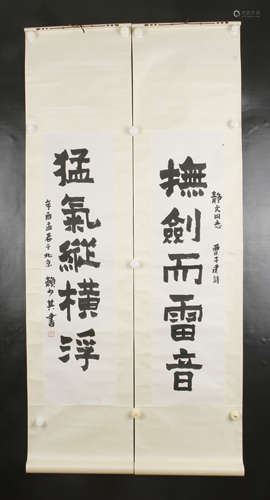 撫劍而雷音
靜文同志
曹子建詩
猛氣縱橫浮
辛酉孟春于北京
賴少其書